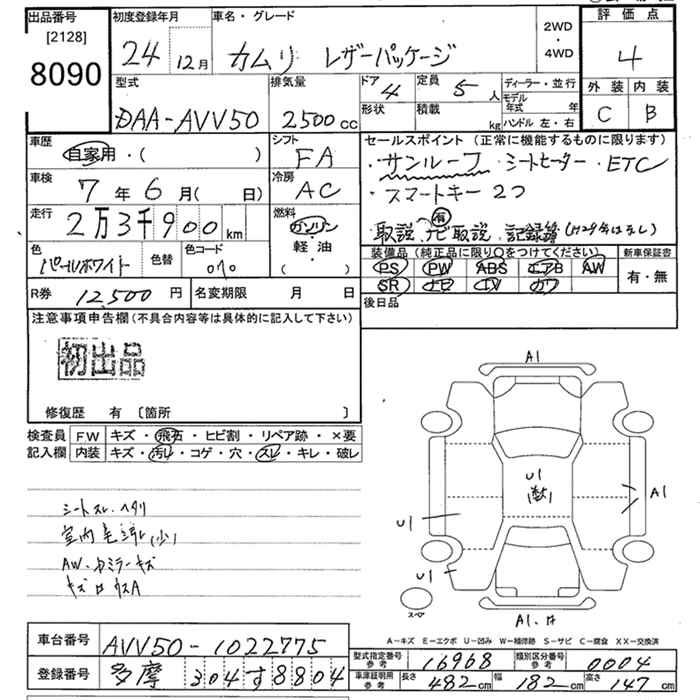 出品番号 初度登録年月 車名・グレード 2WD・4WD 評価点
[2128]
8090 24 12月 カムリ レザーパッケージ 4
型式 排気量 ドア 4 定員 5人 ディーラー・並行 外装 内装
DAA-AVV50 2500cc 形状 積載 kg モデル年式 年 ハンドル 左・右 C B
車歴 自家用・( ) シフト FA セールスポイント (正常に機能するものに限ります)
・サンルーフ・シートヒーター・ETC
車検 7年6月( 日) 冷房 AC ・スマートキー 2つ
走行 2万3千900km 燃料 ガソリン 軽・油 ( ) 有
取説、ナビ取説、記録簿(H29分はなし)
色 パールホワイト 色替 色コード 070 装備品 (純正品に限り○をつけてください) 新車保証書
PS PW ABS エアB AW 有・無
SR ナビ TV カワ
R券 12,500円 名変期限 月 日 後日品
注意事項申告欄(不具合内容等は具体的に記入して下さい)
初出品
修復歴 有 〔箇所 〕
検査員 FW キズ・飛石・ヒビ割・リペア跡・×要
記入欄 内装 キズ・汚れ・コゲ・穴・スレ・キレ・破レ
シートスレ・ヘタリ
室内毛汚れ(小)
AW・ドアミラーキズ
A1
U1
A1
U1
U1
スペア
A1.
A−キズ E−エクボ U−凹み W−補修跡 S−サビ C−腐食 XX−交換済
車台番号 AVV50-1022775
登録番号 多摩 304す8804
型式指定番号 参考 16968 類別区分番号 参考 0004
車庫証明用 参考 長さ 482cm 幅 182cm 高さ 147cm